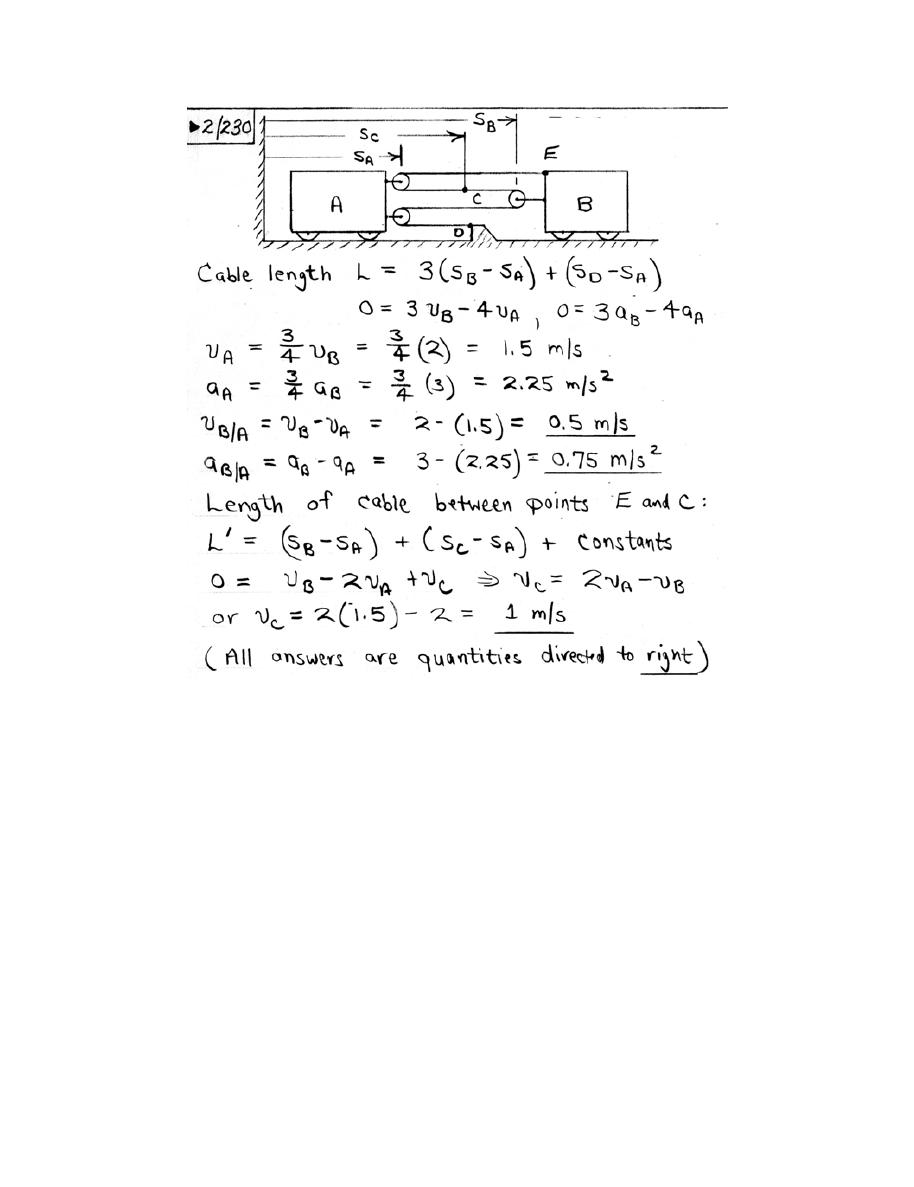 ▸2/230
S_B
S_C
S_A
E
A
C
B
D
Cable length L = 3(S_B - S_A) + (S_D - S_A)
0 = 3v_B - 4v_A , 0 = 3a_B - 4a_A
v_A = 3/4 v_B = 3/4 (2) = 1.5 m/s
a_A = 3/4 a_B = 3/4 (3) = 2.25 m/s²
v_B/A = v_B - v_A = 2 - (1.5) = 0.5 m/s
a_B/A = a_B - a_A = 3 - (2.25) = 0.75 m/s²
Length of cable between points E and C :
L' = (S_B - S_A) + (S_C - S_A) + Constants
0 = v_B - 2v_A + v_C ⇒ v_C = 2v_A - v_B
or v_C = 2(1.5) - 2 = 1 m/s
(All answers are quantities directed to right)